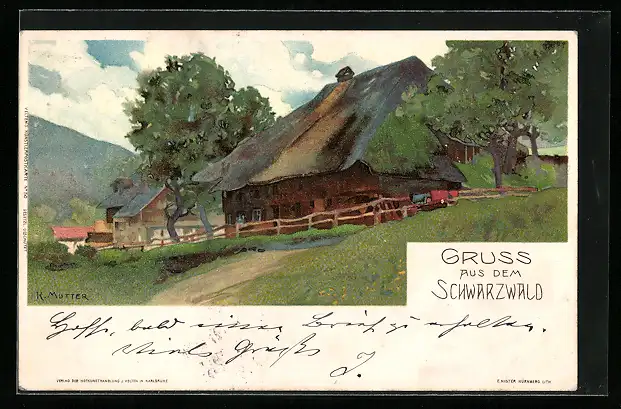 GRUSS
AUS DEM
SCHWARZWALD
K. MUTTER
Hoffe, bald einen Brief zu erhalten.
Viele Grüße J.
VERLAG DER HOFKUNSTHANDLUNG J. VELTEN IN KARLSRUHE
E. NISTER NÜRNBERG LITH.